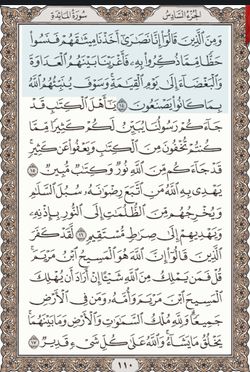 سُورَةُ المَائـِدَةِ الجُزْءُ السَّادِسُ
وَمِنَ ٱلَّذِينَ قَالُوٓا۟ إِنَّا نَصَـٰرَىٰٓ أَخَذْنَا مِيثَـٰقَهُمْ فَنَسُوا۟
حَظًّا مِّمَّا ذُكِّرُوا۟ بِهِۦ فَأَغْرَيْنَا بَيْنَهُمُ ٱلْعَدَاوَةَ
وَٱلْبَغْضَآءَ إِلَىٰ يَوْمِ ٱلْقِيَـٰمَةِ ۚ وَسَوْفَ يُنَبِّئُهُمُ ٱللَّهُ
بِمَا كَانُوا۟ يَصْنَعُونَ ١٤ يَـٰٓأَهْلَ ٱلْكِتَـٰبِ قَدْ
جَآءَكُمْ رَسُولُنَا يُبَيِّنُ لَكُمْ كَثِيرًا مِّمَّا
كُنتُمْ تُخْفُونَ مِنَ ٱلْكِتَـٰبِ وَيَعْفُوا۟ عَن كَثِيرٍ ۚ
قَدْ جَآءَكُم مِّنَ ٱللَّهِ نُورٌ وَكِتَـٰبٌ مُّبِينٌ ١٥
يَهْدِى بِهِ ٱللَّهُ مَنِ ٱتَّبَعَ رِضْوَٰنَهُۥ سُبُلَ ٱلسَّلَـٰمِ
وَيُخْرِجُهُم مِّنَ ٱلظُّلُمَـٰتِ إِلَى ٱلنُّورِ بِإِذْنِهِۦ
وَيَهْدِيهِمْ إِلَىٰ صِرَٰطٍ مُّسْتَقِيمٍ ١٦ لَّقَدْ كَفَرَ
ٱلَّذِينَ قَالُوٓا۟ إِنَّ ٱللَّهَ هُوَ ٱلْمَسِيحُ ٱبْنُ مَرْيَمَ ۚ
قُلْ فَمَن يَمْلِكُ مِنَ ٱللَّهِ شَيْـًٔا إِنْ أَرَادَ أَن يُهْلِكَ
ٱلْمَسِيحَ ٱبْنَ مَرْيَمَ وَأُمَّهُۥ وَمَن فِى ٱلْأَرْضِ
جَمِيعًا ۗ وَلِلَّهِ مُلْكُ ٱلسَّمَـٰوَٰتِ وَٱلْأَرْضِ وَمَا بَيْنَهُمَا ۚ
يَخْلُقُ مَا يَشَآءُ ۚ وَٱللَّهُ عَلَىٰ كُلِّ شَىْءٍ قَدِيرٌ ١٧
١١٠